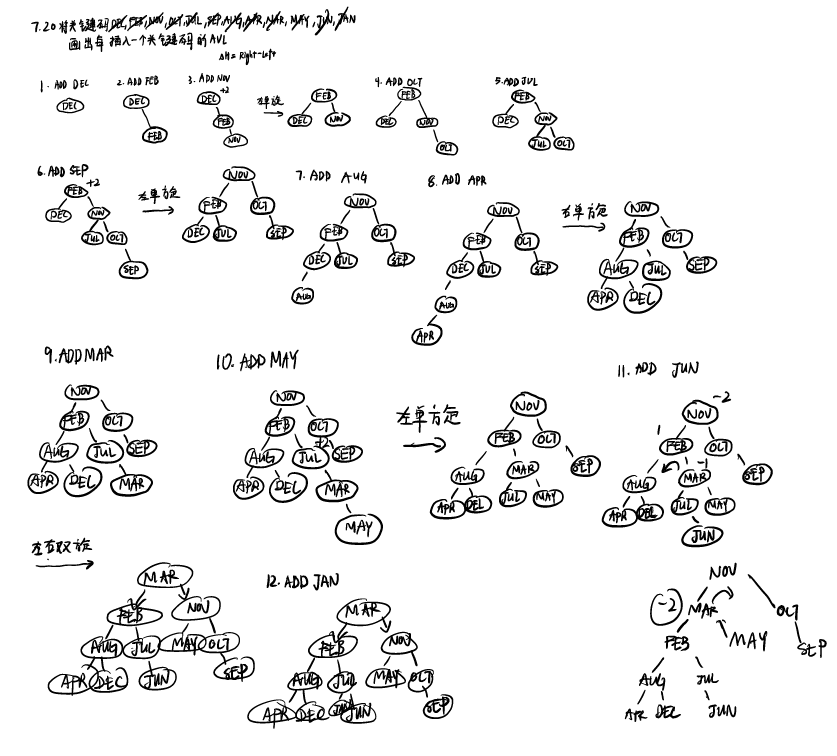 7.20 对关键码DEC, FEB, NOV, OCT, JUL, SEP, AUG, APR, MAR, MAY, JUN, JAN
画出每插入一个关键码的AVL
ΔH = Right-Left
1. ADD DEC
DEC
2. ADD FEB
DEC
FEB
3. ADD NOV
+2
DEC
FEB
NOV
左单旋
FEB
DEC NOV
4. ADD OCT
FEB
DEC NOV
OCT
5. ADD JUL
FEB
DEC NOV
JUL OCT
6. ADD SEP
FEB +2
DEC NOV
JUL OCT
SEP
左单旋
NOV
FEB OCT
DEC JUL SEP
7. ADD AUG
NOV
FEB OCT
DEC JUL SEP
AUG
8. ADD APR
NOV
FEB OCT
DEC JUL SEP
AUG
APR
右单旋
NOV
FEB OCT
AUG JUL SEP
APR DEC
9. ADD MAR
NOV
FEB OCT
AUG JUL SEP
APR DEC MAR
10. ADD MAY
NOV
FEB OCT
+2
AUG JUL SEP
APR DEC MAR
MAY
左单旋
NOV
FEB OCT
AUG MAR SEP
APR DEC JUL MAY
11. ADD JUN
NOV -2
1
FEB OCT
-1
AUG MAR SEP
APR DEC JUL MAY
JUN
左右双旋
MAR
FEB NOV
AUG JUL MAY OCT
APR DEC JUN SEP
12. ADD JAN
MAR
FEB NOV
AUG JUL MAY OCT
APR DEC JAN JUN SEP
NOV
-2 MAR OCT
FEB MAY SEP
AUG JUL
APR DEC JUN